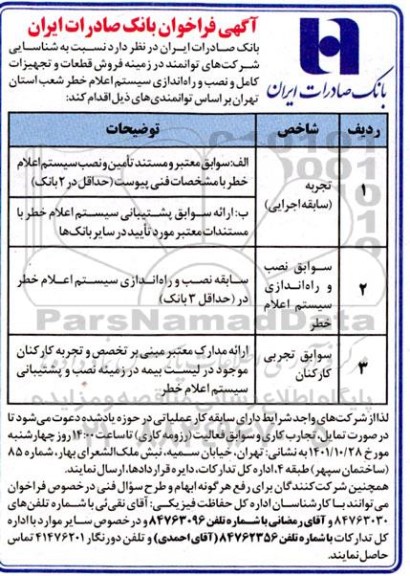 آگهی فراخوان بانک صادرات ایران
بانک صادرات ایران در نظر دارد نسبت به شناسایی
شرکت‌های توانمند در زمینه فروش قطعات و تجهیزات
کامل و نصب و راه‌اندازی سیستم اعلام خطر شعب استان
تهران بر اساس توانمندی‌های ذیل اقدام کند:
بانک صادرات ایران
ردیف شاخص توضیحات
۱ تجربه (سابقه اجرایی)
الف: سوابق معتبر و مستند تأمین و نصب سیستم اعلام
خطر با مشخصات فنی پیوست (حداقل در ۲ بانک)
ب: ارائه سوابق پشتیبانی سیستم اعلام خطر با
مستندات معتبر مورد تأیید در سایر بانک‌ها
۲ سوابق نصب و راه‌اندازی سیستم اعلام خطر
سابقه نصب و راه‌اندازی سیستم اعلام خطر
در (حداقل ۳ بانک)
۳ سوابق تجربی کارکنان
ارائه مدارک معتبر مبنی بر تخصص و تجربه کارکنان
موجود در لیست بیمه در زمینه نصب و پشتیبانی
سیستم اعلام خطر
لذا از شرکت‌های واجد شرایط دارای سابقه کار عملیاتی در حوزه یادشده دعوت می‌شود تا
در صورت تمایل، تجارب کاری و سوابق فعالیت (رزومه کاری) تا ساعت ۱۴:۰۰ روز چهارشنبه
مورخ ۱۴۰۱/۱۰/۲۸ به نشانی: تهران، خیابان سمیه، نبش ملک‌الشعرای بهار، شماره ۸۵
(ساختمان سپهر) طبقه ۴، اداره کل تدارکات، دایره قراردادها، ارسال نمایند.
همچنین شرکت‌کنندگان برای رفع هر گونه ابهام و طرح سؤال فنی در خصوص فراخوان
می‌توانند با کارشناسان اداره کل حفاظت فیزیکی: آقای نقی‌ئی با شماره تلفن‌های
۸۴۷۶۳۰۳۰ و آقای رمضانی با شماره تلفن ۸۴۷۶۳۰۹۶ و در خصوص سایر موارد با اداره
کل تدارکات با شماره تلفن ۸۴۷۶۲۳۵۶ (آقای احمدی) و تلفن دورنگار ۴۱۴۷۶۲۰۱ تماس
حاصل نمایند.
ParsNamadData